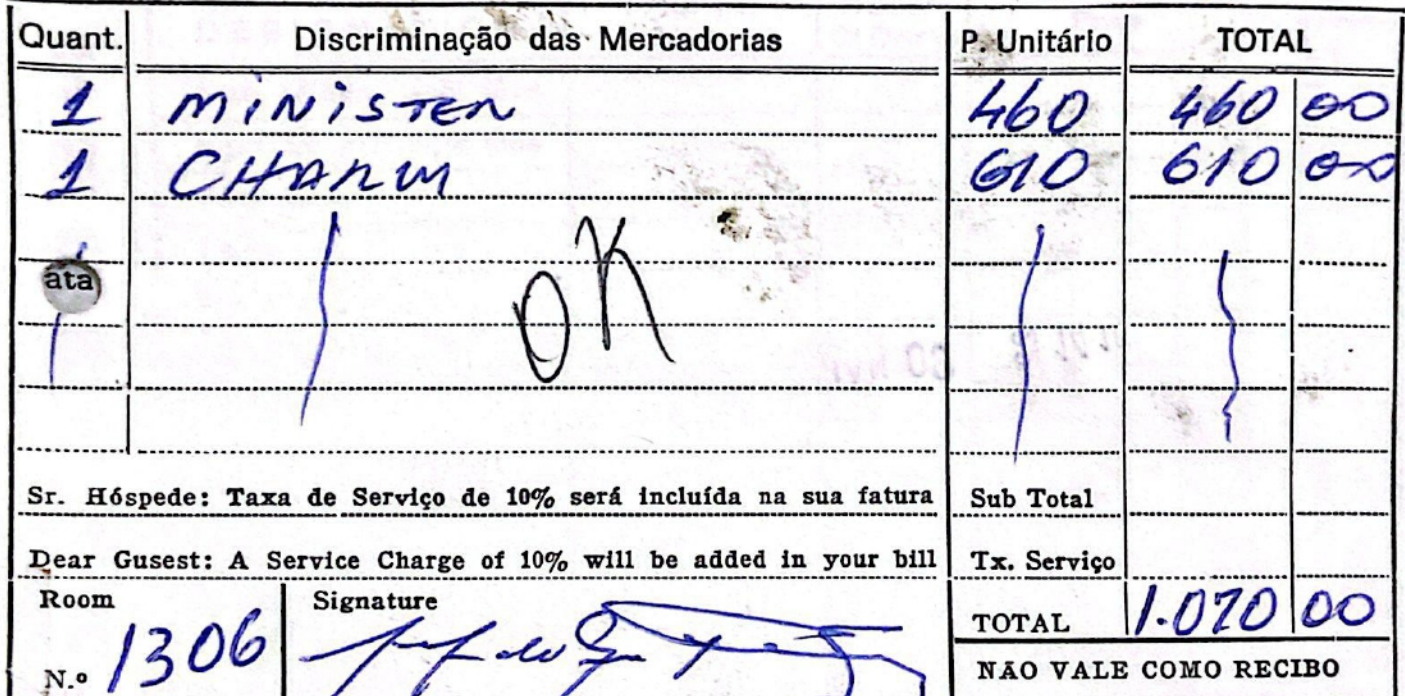 Quant. Discriminação das Mercadorias P. Unitário TOTAL
1 MINISTER 460 460 00
1 CHARM 610 610 00
OK
ata
Sr. Hóspede: Taxa de Serviço de 10% será incluída na sua fatura Sub Total
Dear Gusest: A Service Charge of 10% will be added in your bill Tx. Serviço
Room Signature TOTAL 1.070 00
N.º 1306
NAO VALE COMO RECIBO